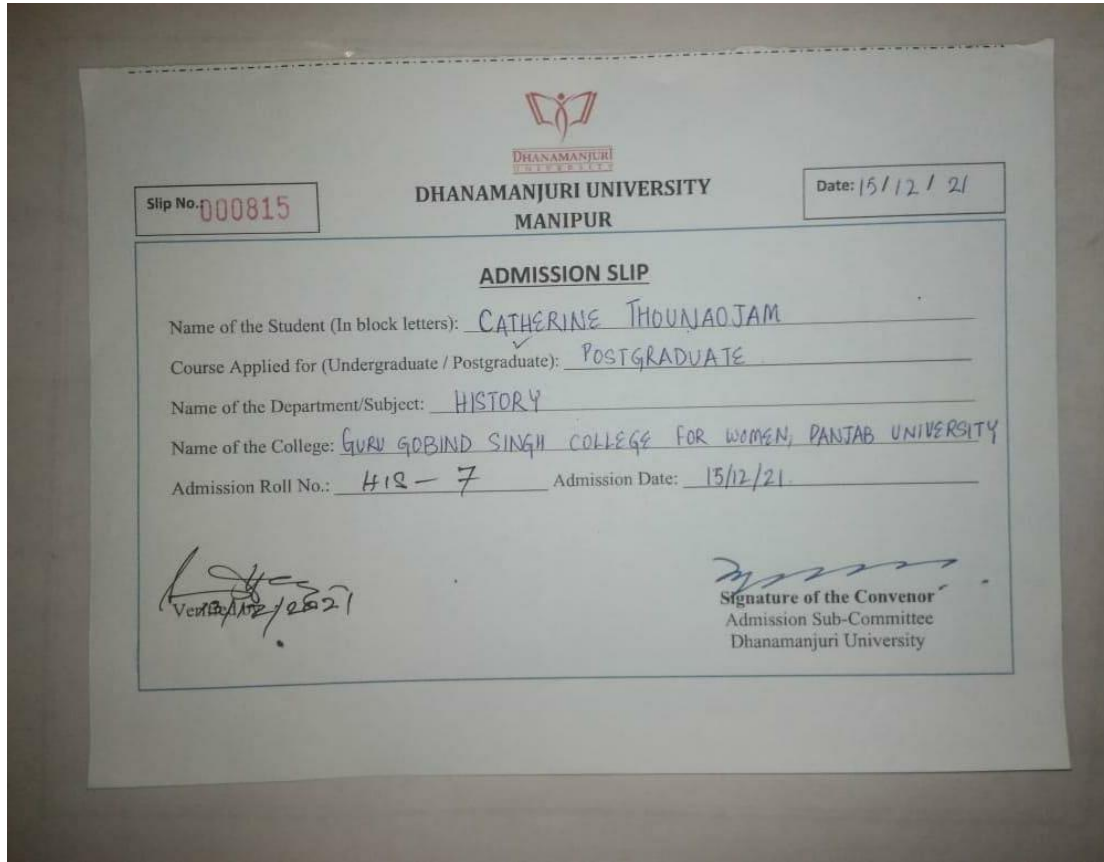 DHANAMANJURI
UNIVERSITY
Slip No.: 000815
DHANAMANJURI UNIVERSITY
MANIPUR
Date: 15/12/21
ADMISSION SLIP
Name of the Student (In block letters): CATHERINE THOUNAOJAM
Course Applied for (Undergraduate / Postgraduate): POSTGRADUATE
Name of the Department/Subject: HISTORY
Name of the College: GURU GOBIND SINGH COLLEGE FOR WOMEN, PANJAB UNIVERSITY
Admission Roll No.: HIS - 7 Admission Date: 15/12/21
Signature of the Convenor
Admission Sub-Committee
Dhanamanjuri University